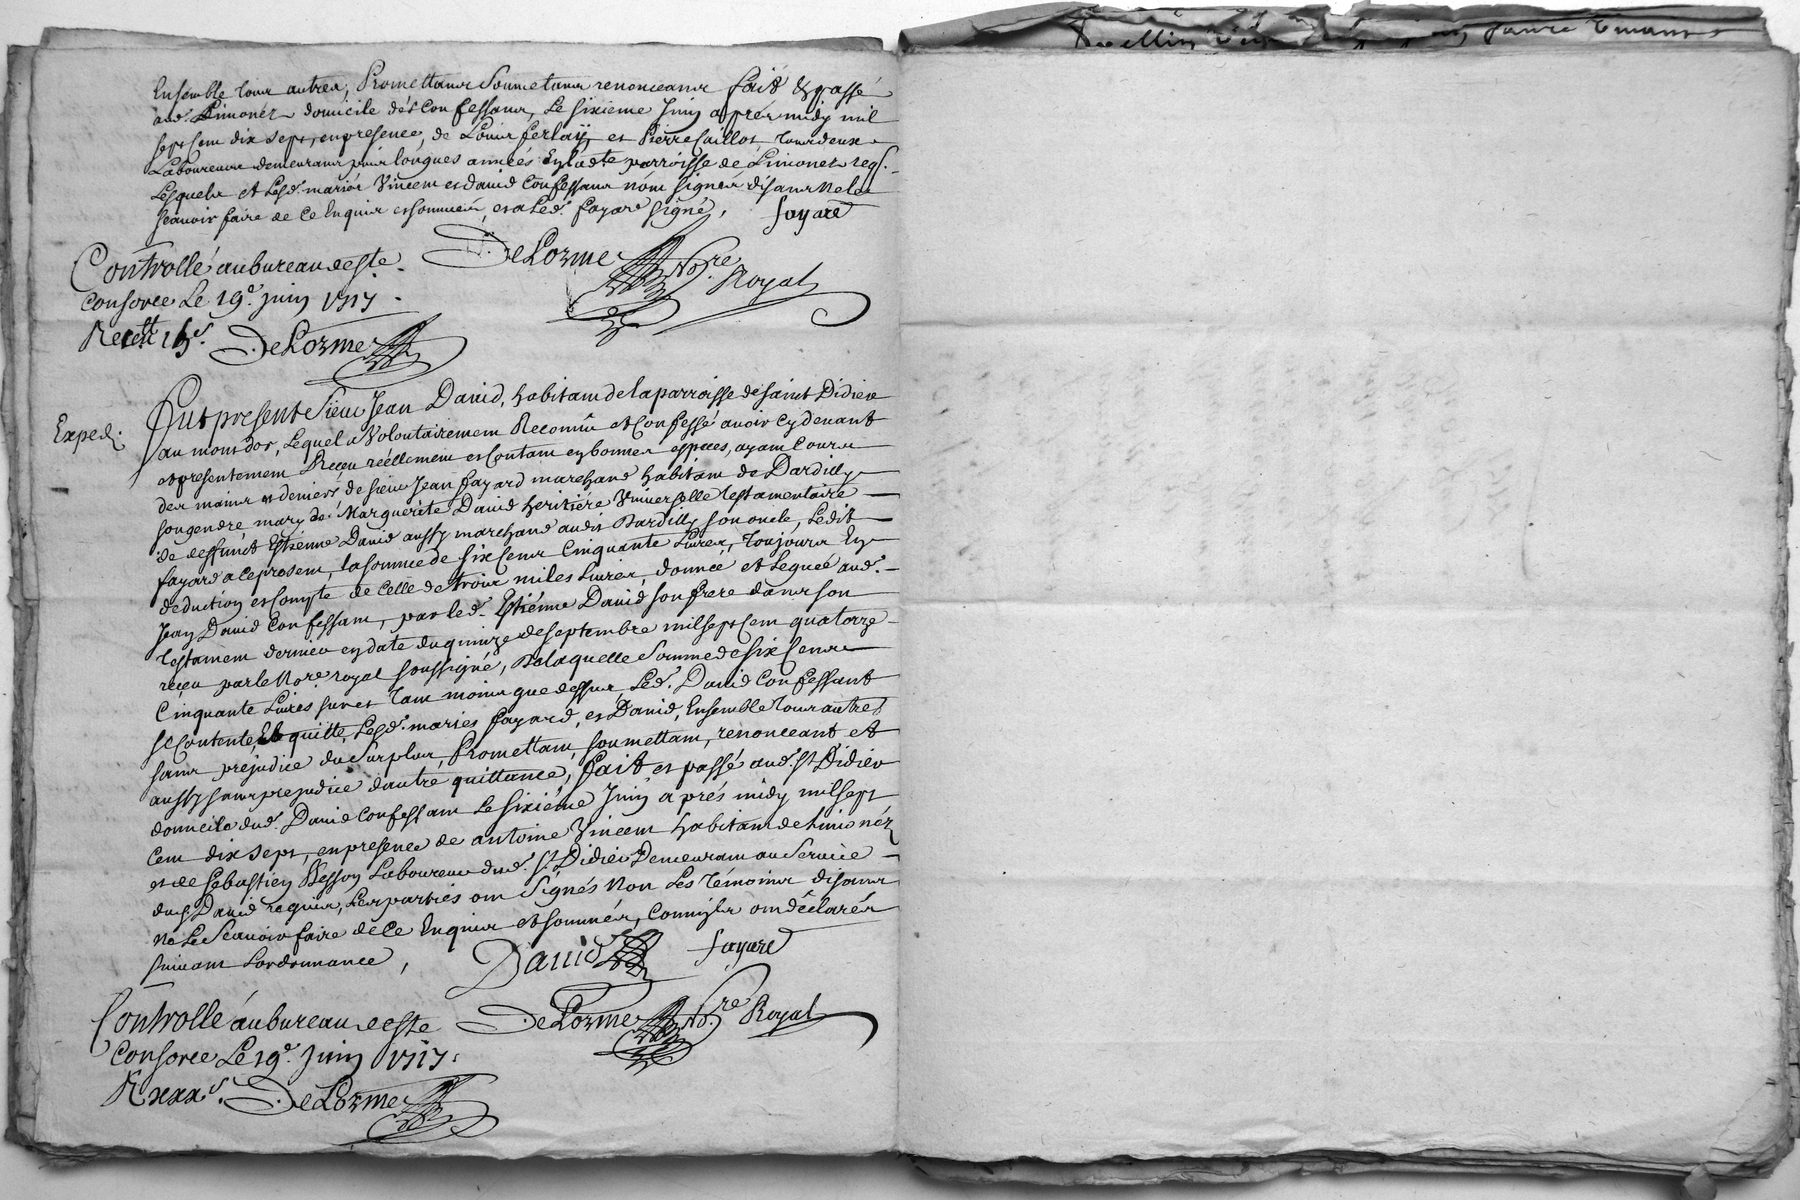 Ensemble tous autres, Promettans Soumetans renonceans fait & passé
aud. Limonez domicile des Confessans, Le sixieme Juin apres midy mil
sept cens dix sept, en presence, de Louis ferlay et Pierre Caillot tous deux
Laboureurs demeurans puis longues années en ladte parroisse de Limonez reqs.
Lesquels et Lesd. mariés Vincent et David Confessans nont signés disans ne le
scavoir faire de ce Enquis et sommés, et a Led. fayard signé,
fayard
DeLorme Nore. Royal
Controllé au bureau de ste
Consorce Le 19e. juin 1717.
DeLorme
Exped.
fut present Sieur Jean David, habitant de la parroisse de saint Didier
au mont dor, Lequel a Volontairement Reconnu et Confessé avoir cy devant
et presentement Receu réellement et Contant en bonnes especes, ayant Cours
des mains et deniers, de sieur Jean fayard marchand habitant de Dardilly
son gendre, mary de Marguerite David heritiére Universelle testamentaire
de deffunct Estienne David aussy marchand audit Dardilly son oncle, Ledit
fayard a ce present, la somme de six Cens Cinquante Livres, Toujours En
deduction et Compte de Celle de trois miles Livres, donnée et Leguée aud.
Jean David Confessant, par led. Estienne David son frere dans son
testament dernier en date du quinze de septembre mil sept cent quatorze
receu par le Nore. royal soussigné, De laquelle Somme de six Cens
Cinquante Livres sur et tant moins que dessus, Led. David Confessant
se Contente, Et quitte, Lesd. mariés fayard, et David, Ensemble tous autres
sans prejudice du Surplus, Promettant, soumettant, renonceant et
aussy sans prejudice dautre quittance, fait et passé aud. St Didier
domicile dud. David Confessant Le sixiéme Juin aprés midy mil sept
Cent dix sept, en presence de antoine Vincent habitant de Limonéz
et de Sebastien Besson Laboureur dud. St Didier Demeurant au Service
dud. David requis, Les parties ont Signés Non Les témoins disans
ne Le Scavoir faire de Ce Enquis et sommés, Commils ont déclarés
suivant Lordonnance,
David fayard
DeLorme Nore. Royal
Controllé au bureau de ste
Consorce Le 19e. juin 1717.
R xxx s. DeLorme